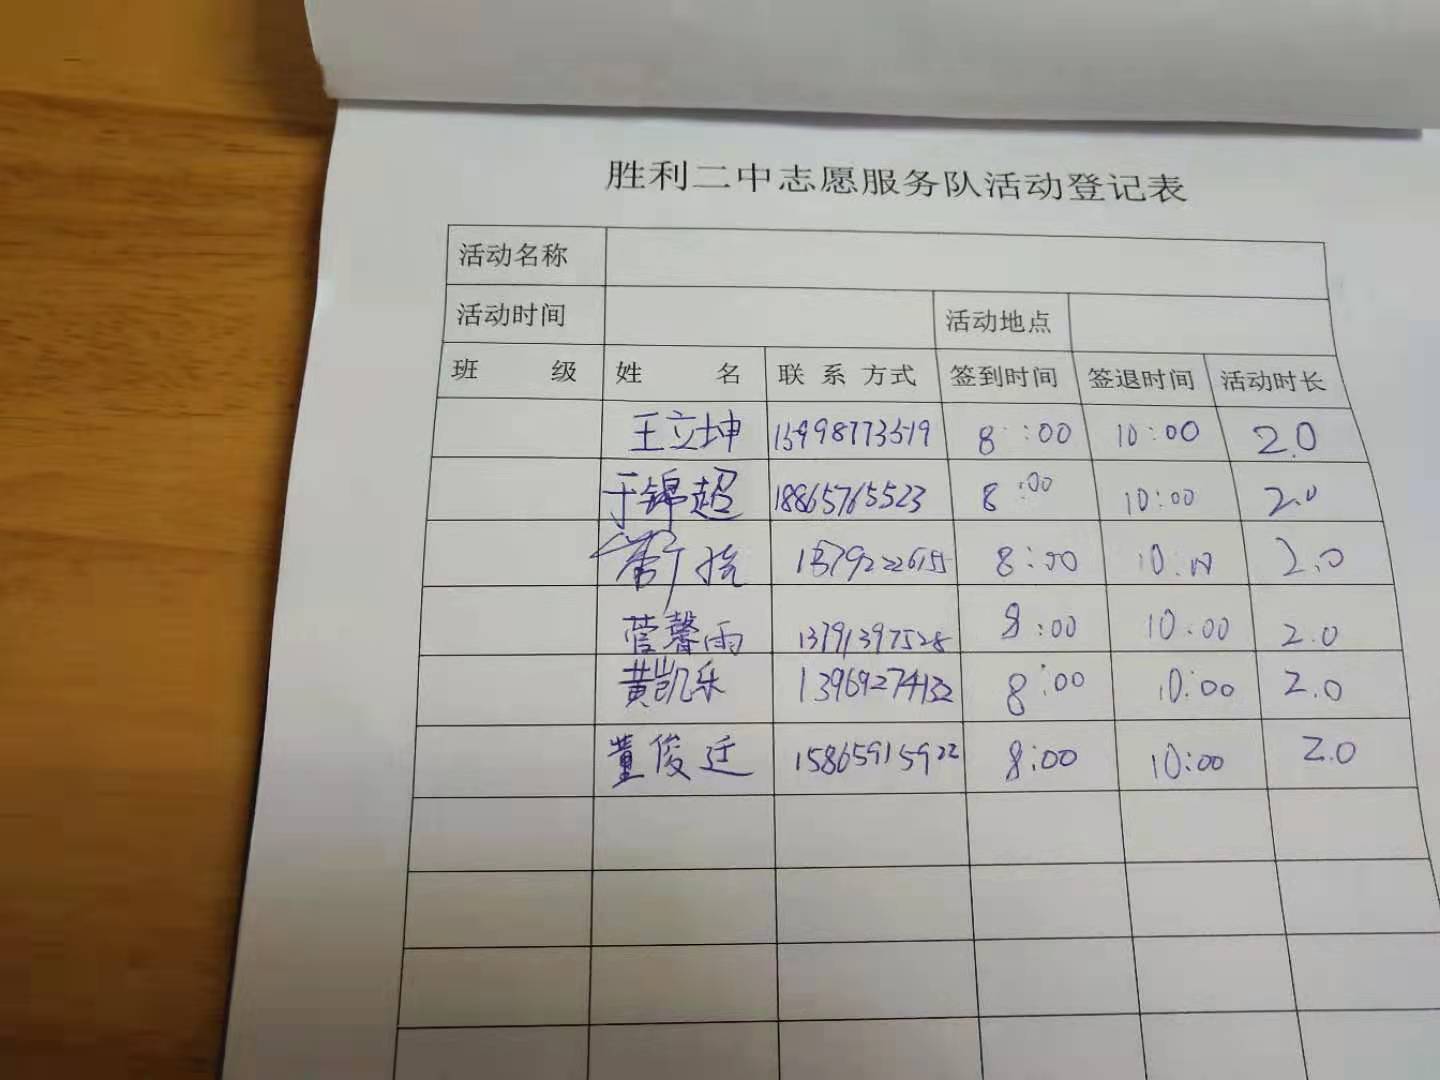 胜利二中志愿服务队活动登记表
活动名称
活动时间 活动地点
班 级 姓 名 联系方式 签到时间 签退时间 活动时长
王立坤 15998773519 8:00 10:00 2.0
于锦超 18865765523 8:00 10:00 2.0
8:00 10:00 2.0
菅馨雨 13791397528 8:00 10:00 2.0
黄凯乐 13969274132 8:00 10:00 2.0
董俊廷 15865915922 8:00 10:00 2.0